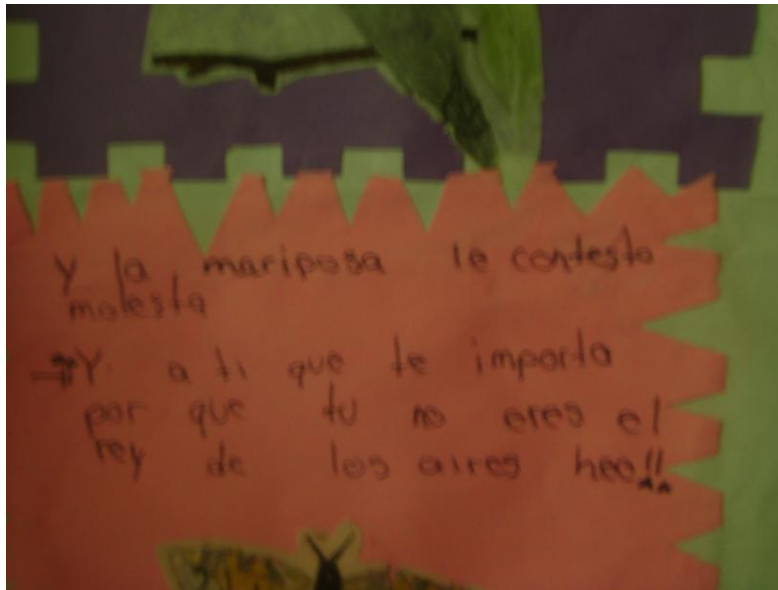 Y la mariposa le contesto
molesta
→Y a ti que te importa
por que tu no eres el
rey de los aires hee!!